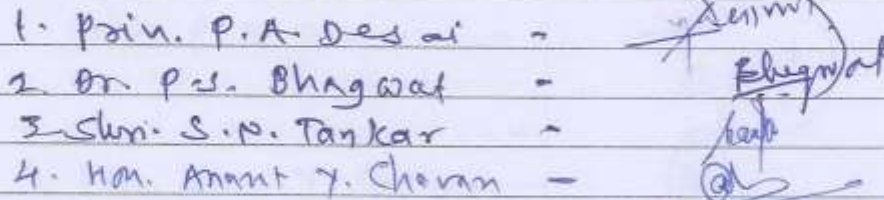 1. Prin. P.A. Desai -
2 Dr P.S. Bhagwat - Bhagwat
3 Shri. S.N. Tankar -
4. Hon. Anant Y. Chavan -